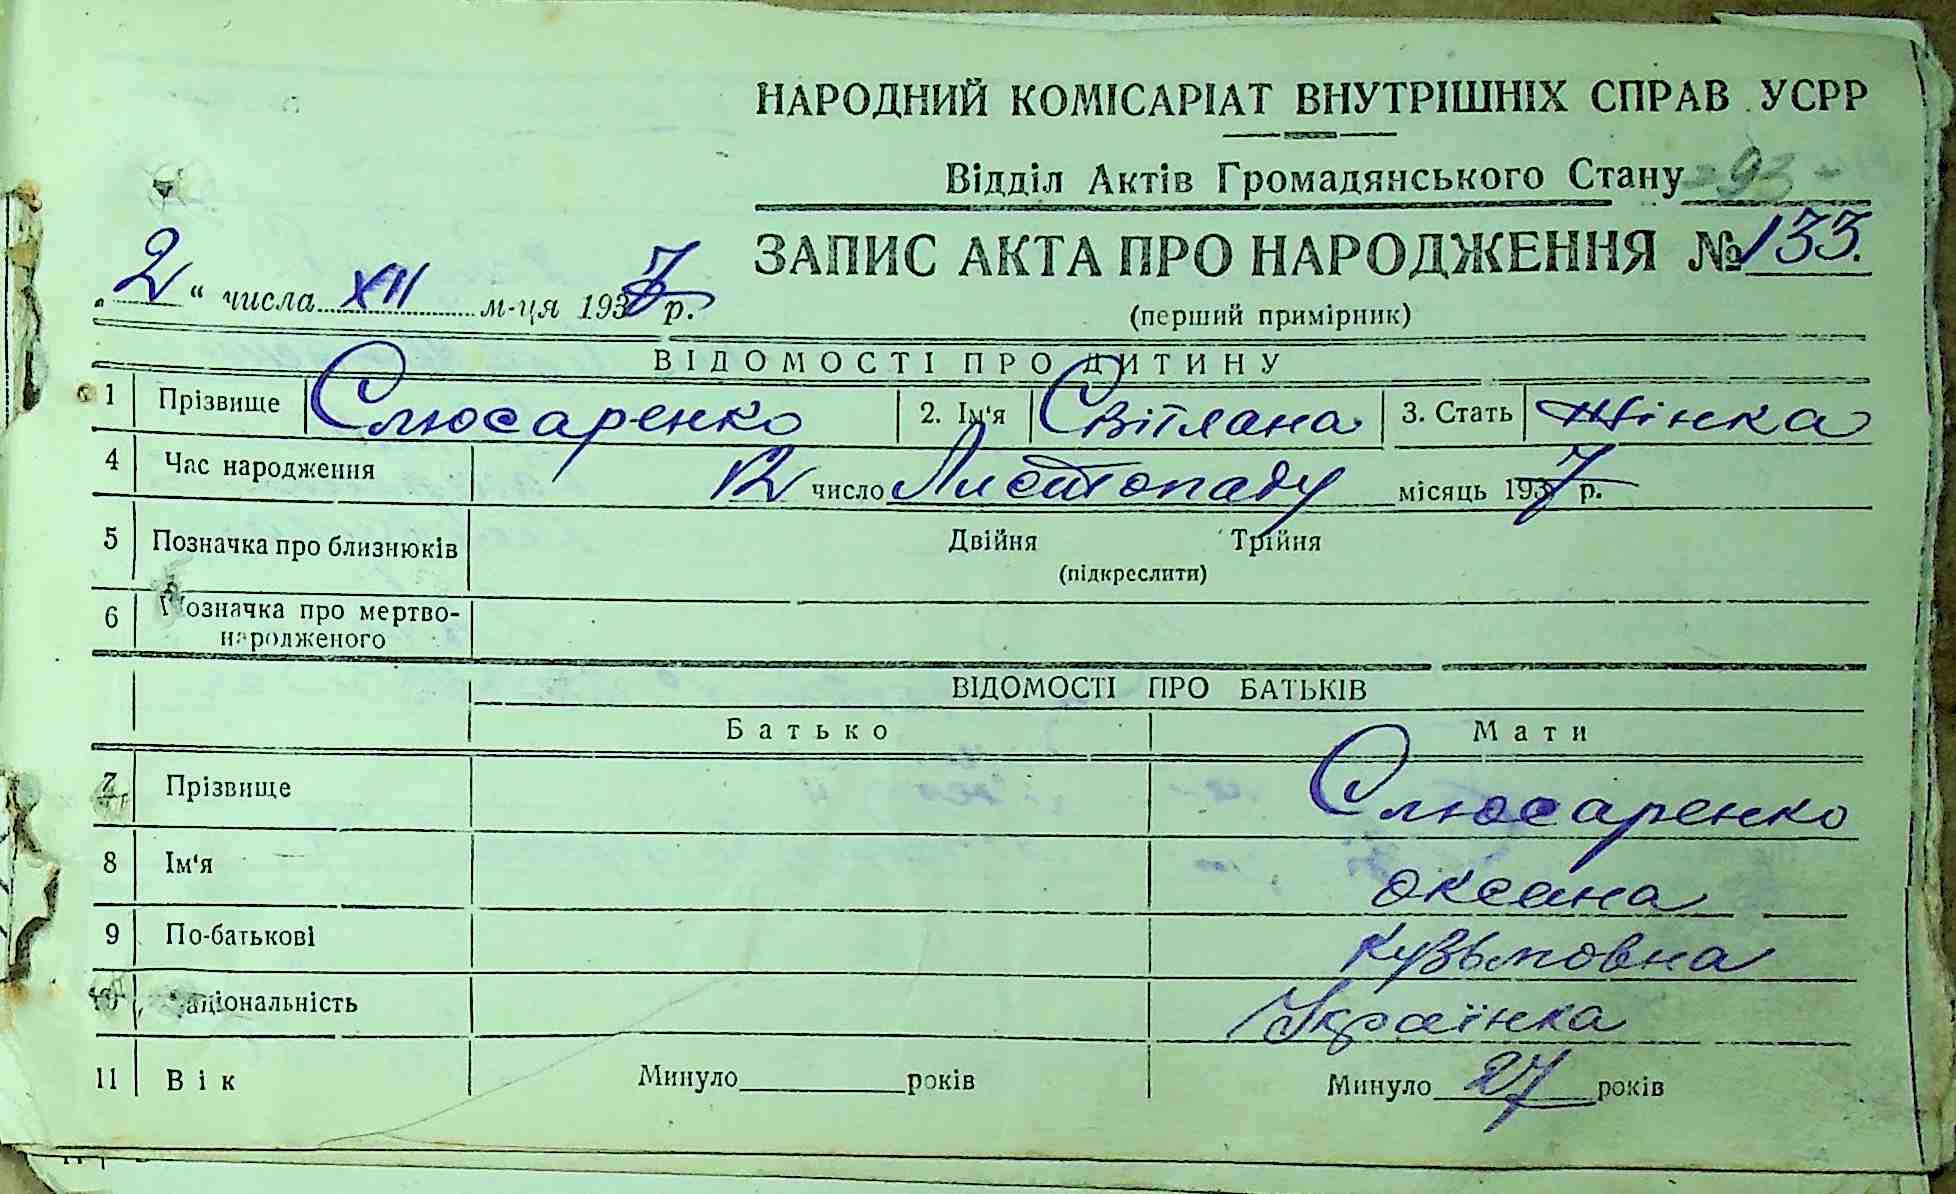 НАРОДНИЙ КОМІСАРІАТ ВНУТРІШНІХ СПРАВ УСРР
Відділ Актів Громадянського Стану - 93 -
ЗАПИС АКТА ПРО НАРОДЖЕННЯ № 133.
„2“ числа XII м-ця 1937 р.
(перший примірник)
ВІДОМОСТІ ПРО ДИТИНУ
1 Прізвище Слюсаренко 2. Ім'я Світлана 3. Стать Жінка
4 Час народження 12 число Листопаду місяць 1937 р.
5 Позначка про близнюків Двійня Трійня
(підкреслити)
6 Позначка про мертво-
народженого
ВІДОМОСТІ ПРО БАТЬКІВ
Батько Мати
7 Прізвище Слюсаренко
8 Ім'я Оксана
9 По-батькові Кузьмовна
10 Національність Українка
11 Вік Минуло років Минуло 27 років